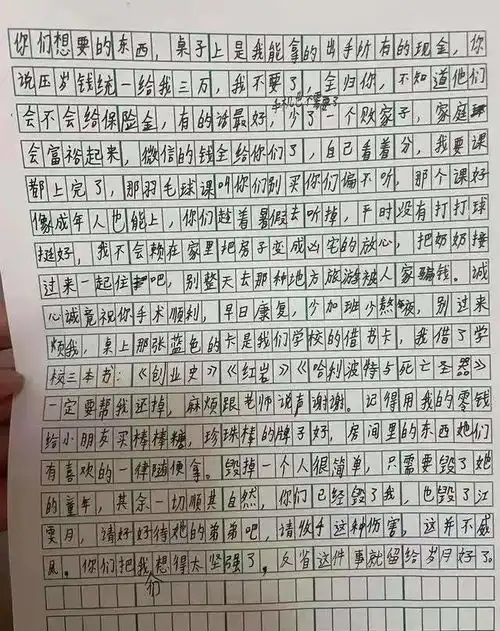 你们想要的东西，桌子上是我能拿的出手所有的现金，你
说压岁钱统一给我三万，我不要了，全归你，不知道他们
会不会给保险金，有的话最好，少了一个败家子，家庭
手机也不需要了
会富裕起来，微信的钱全给你们了，自己看着分，我要课
都上完了，那羽毛球课叫你们别买你们偏不听，那个课好
像成年人也能上，你们趁着暑假去听掉，平时没有打打球
挺好，我不会赖在家里把房子变成凶宅的放心，把奶奶接
过来一起住吧，别整天去那种地方旅游被人家骗钱。诚
心诚意祝你手术顺利，早日康复，少加班少熬夜，别过来
烦我，桌上那张蓝色的卡是我们学校的借书卡，我借了学
校三本书：《创业史》《红岩》《哈利波特与死亡圣器》
一定要帮我还掉，麻烦跟老师说声谢谢。记得用我的零钱
给小朋友买棒棒糖，珍珍棒的牌子好，房间里的东西她们
有喜欢的一律随便拿。毁掉一个人很简单，只需要毁了她
的童年，其余一切顺其自然，你们已经毁了我，也毁了江
雯月，请好好待她的弟弟吧，请收手这种伤害，这并不威
风。你们把我们想得太坚强了，反省这件事就留给岁月好了。